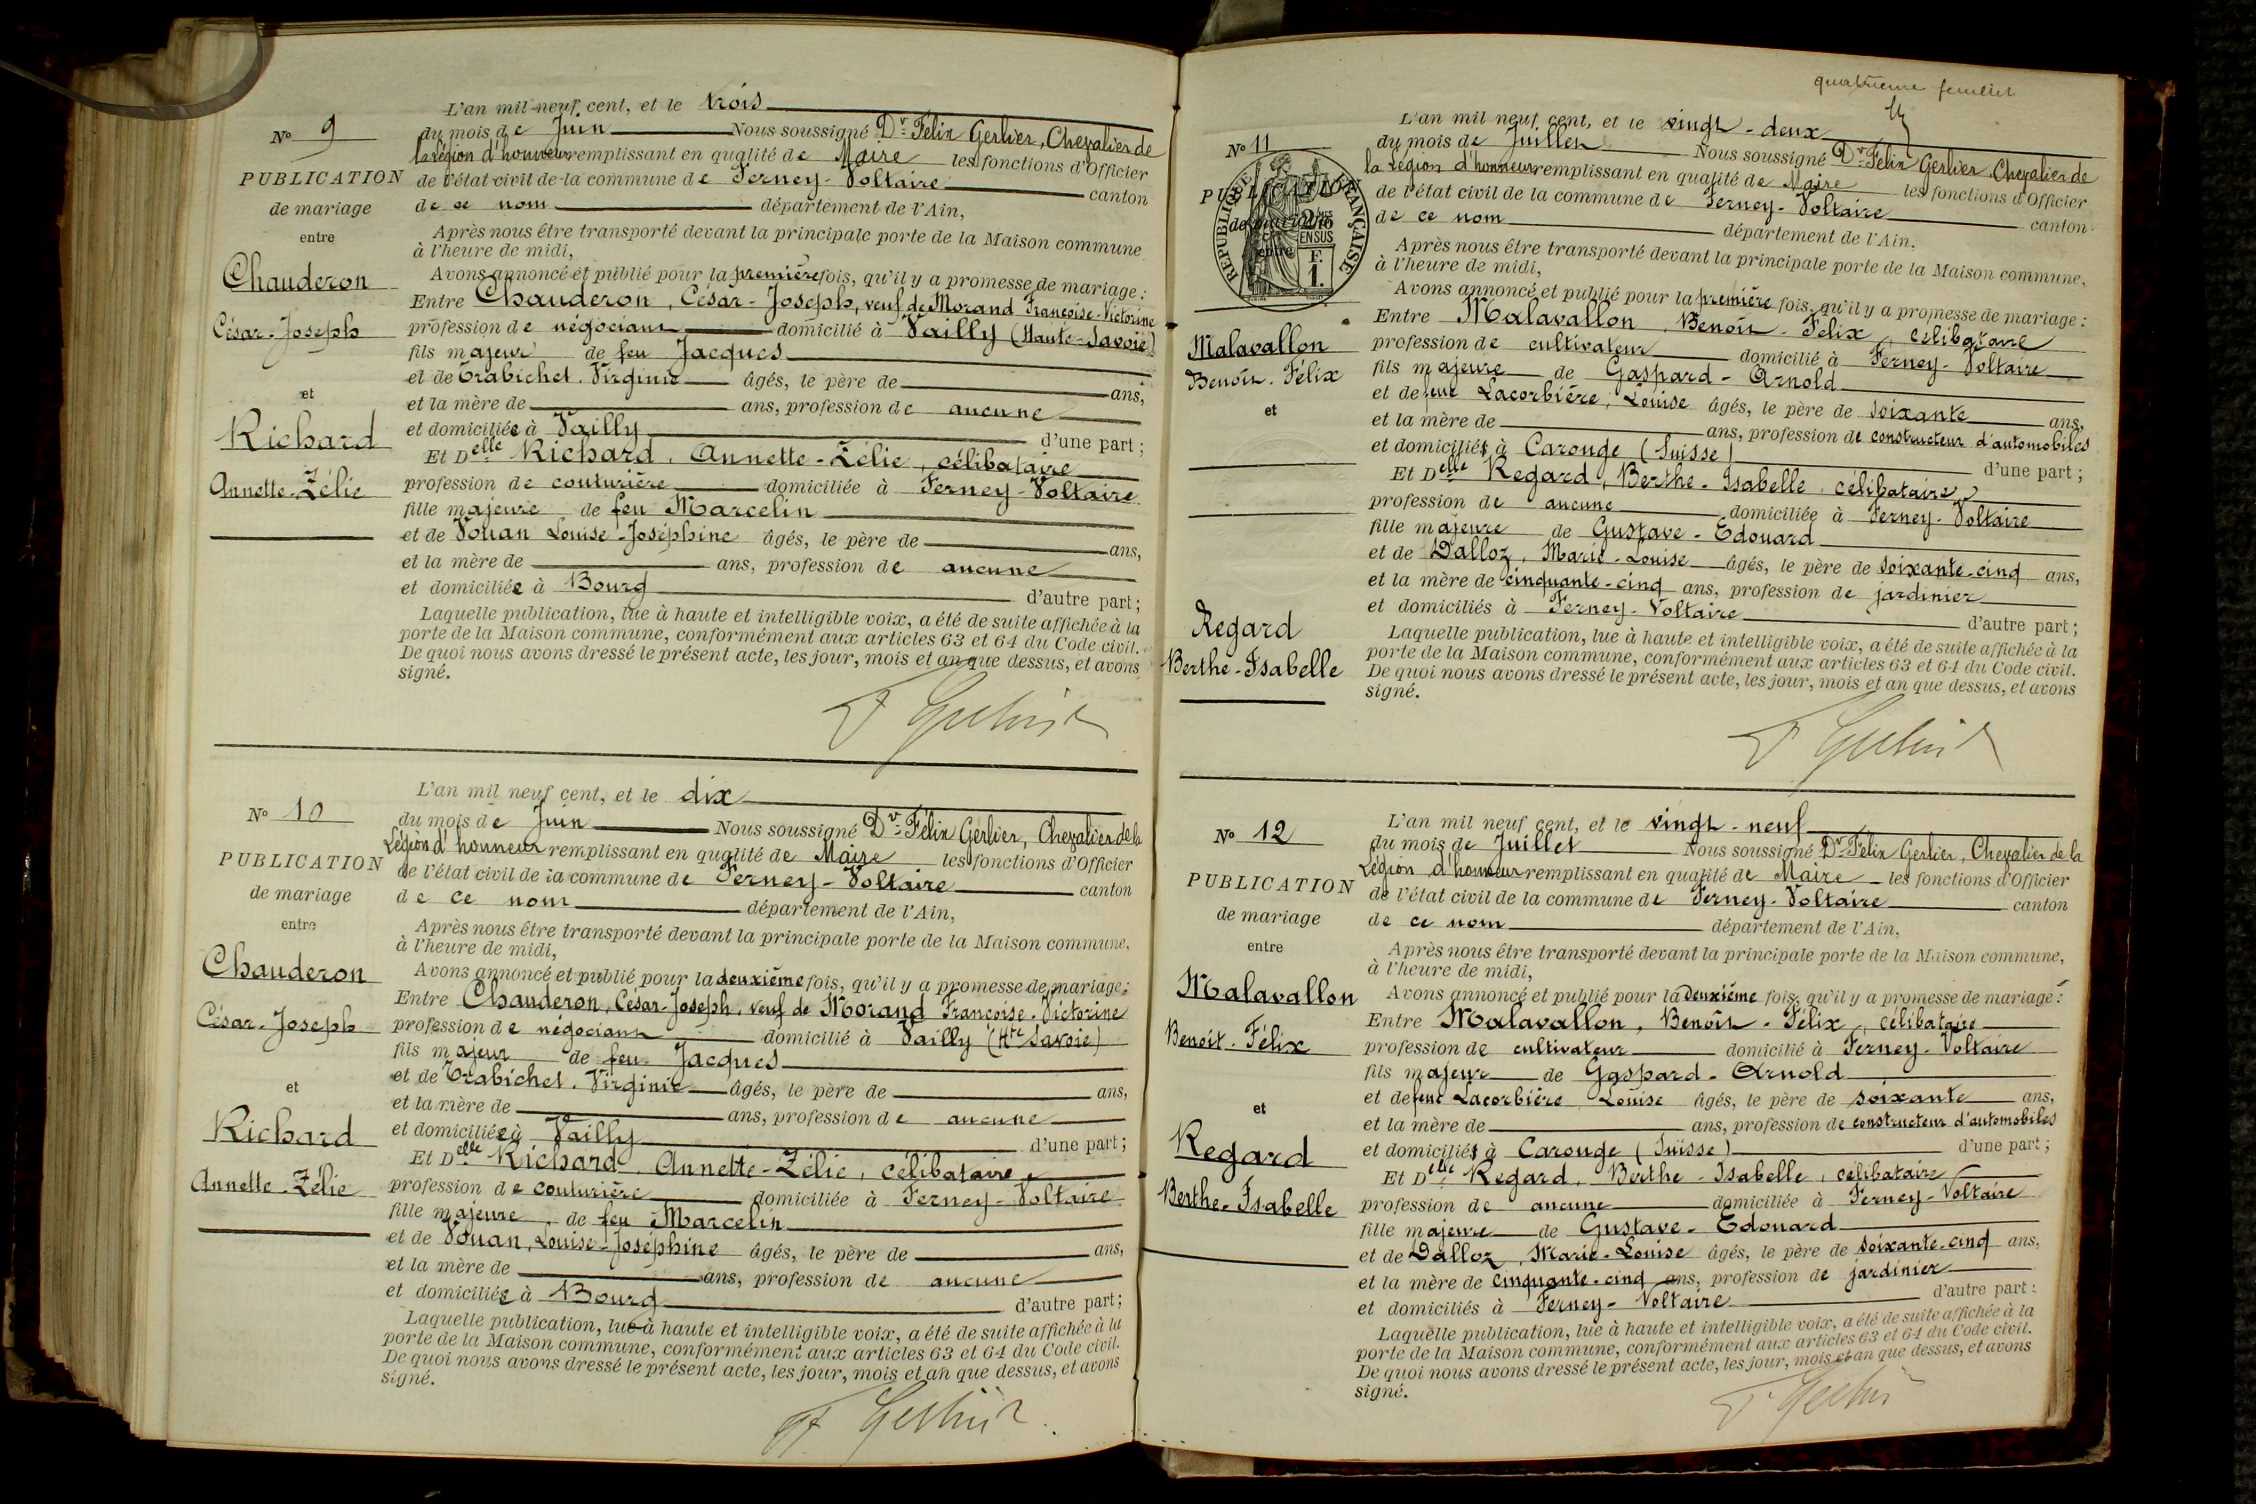 L'an mil neuf cent, et le trois
No 9
du mois de Juin Nous soussigné Dr Félix Gerlier, Chevalier de
la Légion d'honneur remplissant en qualité de Maire les fonctions d'Officier
PUBLICATION
de l'état civil de la commune de Ferney-Voltaire canton
de mariage
de ce nom département de l'Ain,
entre
Après nous être transporté devant la principale porte de la Maison commune
à l'heure de midi,
Chauderon
Avons annoncé et publié pour la première fois, qu'il y a promesse de mariage :
Entre Chauderon, César-Joseph, veuf de Morand Françoise-Victorine
César-Joseph
profession de négociant domicilié à Vailly (Haute-Savoie)
fils majeur de feu Jacques
et de Trabichet. Virginie âgés, le père de ans,
et
et la mère de ans, profession de aucune
Richard
et domiciliée à Vailly d'une part ;
Et Delle Richard, Annette-Zélie, célibataire
Annette-Zélie
profession de couturière domiciliée à Ferney-Voltaire
fille majeure de feu Marcelin
et de Vouan Louise-Joséphine âgés, le père de ans,
et la mère de ans, profession de aucune
et domiciliée à Bourg d'autre part ;
Laquelle publication, lue à haute et intelligible voix, a été de suite affichée à la
porte de la Maison commune, conformément aux articles 63 et 64 du Code civil.
De quoi nous avons dressé le présent acte, les jour, mois et an que dessus, et avons
signé.
F Gerlier
L'an mil neuf cent, et le dix
No 10
du mois de Juin Nous soussigné Dr Félix Gerlier, Chevalier de la
Légion d'honneur remplissant en qualité de Maire les fonctions d'Officier
PUBLICATION
de l'état civil de la commune de Ferney-Voltaire canton
de mariage
de ce nom département de l'Ain,
entre
Après nous être transporté devant la principale porte de la Maison commune,
à l'heure de midi,
Chauderon
Avons annoncé et publié pour la deuxième fois, qu'il y a promesse de mariage :
Entre Chauderon, César-Joseph, veuf de Morand Françoise-Victorine
César-Joseph
profession de négociant domicilié à Vailly (Hte Savoie)
fils majeur de feu Jacques
et de Trabichet. Virginie âgés, le père de ans,
et
et la mère de ans, profession de aucune
Richard
et domiciliée à Vailly d'une part ;
Et Delle Richard Annette-Zélie, célibataire,
Annette-Zélie
profession de couturière domiciliée à Ferney-Voltaire
fille majeure de feu Marcelin
et de Vouan, Louise-Joséphine âgés, le père de ans,
et la mère de ans, profession de aucune
et domiciliée à Bourg d'autre part ;
Laquelle publication, lue à haute et intelligible voix, a été de suite affichée à la
porte de la Maison commune, conformément aux articles 63 et 64 du Code civil.
De quoi nous avons dressé le présent acte, les jour, mois et an que dessus, et avons
signé.
F Gerlier
quatrième feuillet
L'an mil neuf cent, et le vingt-deux
No 11
du mois de Juillet Nous soussigné Dr Félix Gerlier, Chevalier de
la Légion d'honneur remplissant en qualité de Maire les fonctions d'Officier
PUBLICATION
de l'état civil de la commune de Ferney-Voltaire canton
de mariage
de ce nom département de l'Ain.
entre
RÉPUBLIQUE FRANÇAISE
EN SUS
F. 1.
Après nous être transporté devant la principale porte de la Maison commune,
à l'heure de midi,
Avons annoncé et publié pour la première fois, qu'il y a promesse de mariage :
Entre Malavallon, Benoît-Félix, célibataire
Malavallon
profession de cultivateur domicilié à Ferney-Voltaire
Benoît-Félix
fils majeure de Gaspard-Arnold
et de feue Lacorbière, Louise âgés, le père de soixante ans,
et
et la mère de ans, profession de constructeur d'automobiles
et domiciliés à Carouge (Suisse) d'une part ;
Et Delle Regard, Berthe-Isabelle, célibataire,
profession de aucune domiciliée à Ferney-Voltaire
fille majeure de Gustave-Edouard
et de Dalloz, Marie-Louise âgés, le père de soixante-cinq ans,
et la mère de cinquante-cinq ans, profession de jardinier
et domiciliés à Ferney-Voltaire d'autre part ;
Regard
Berthe-Isabelle
Laquelle publication, lue à haute et intelligible voix, a été de suite affichée à la
porte de la Maison commune, conformément aux articles 63 et 64 du Code civil.
De quoi nous avons dressé le présent acte, les jour, mois et an que dessus, et avons
signé.
F Gerlier
L'an mil neuf cent, et le vingt-neuf
No 12
du mois de Juillet Nous soussigné Dr Félix Gerlier, Chevalier de la
Légion d'honneur remplissant en qualité de Maire les fonctions d'Officier
PUBLICATION
de l'état civil de la commune de Ferney-Voltaire canton
de mariage
de ce nom département de l'Ain,
entre
Après nous être transporté devant la principale porte de la Maison commune,
à l'heure de midi,
Malavallon
Avons annoncé et publié pour la deuxième fois, qu'il y a promesse de mariage :
Entre Malavallon, Benoît-Félix, célibataire
Benoît-Félix
profession de cultivateur domicilié à Ferney-Voltaire
fils majeur de Gaspard-Arnold
et de feue Lacorbière Louise âgés, le père de soixante ans,
et
et la mère de ans, profession de constructeur d'automobiles
Regard
et domiciliés à Carouge (Suisse) d'une part ;
Et Delle Regard, Berthe-Isabelle, célibataire
Berthe-Isabelle
profession de aucune domiciliée à Ferney-Voltaire
fille majeure de Gustave-Edouard
et de Dalloz, Marie-Louise âgés, le père de soixante-cinq ans,
et la mère de cinquante-cinq ans, profession de jardinier
et domiciliés à Ferney-Voltaire d'autre part :
Laquelle publication, lue à haute et intelligible voix, a été de suite affichée à la
porte de la Maison commune, conformément aux articles 63 et 64 du Code civil.
De quoi nous avons dressé le présent acte, les jour, mois et an que dessus, et avons
signé.
F Gerlier